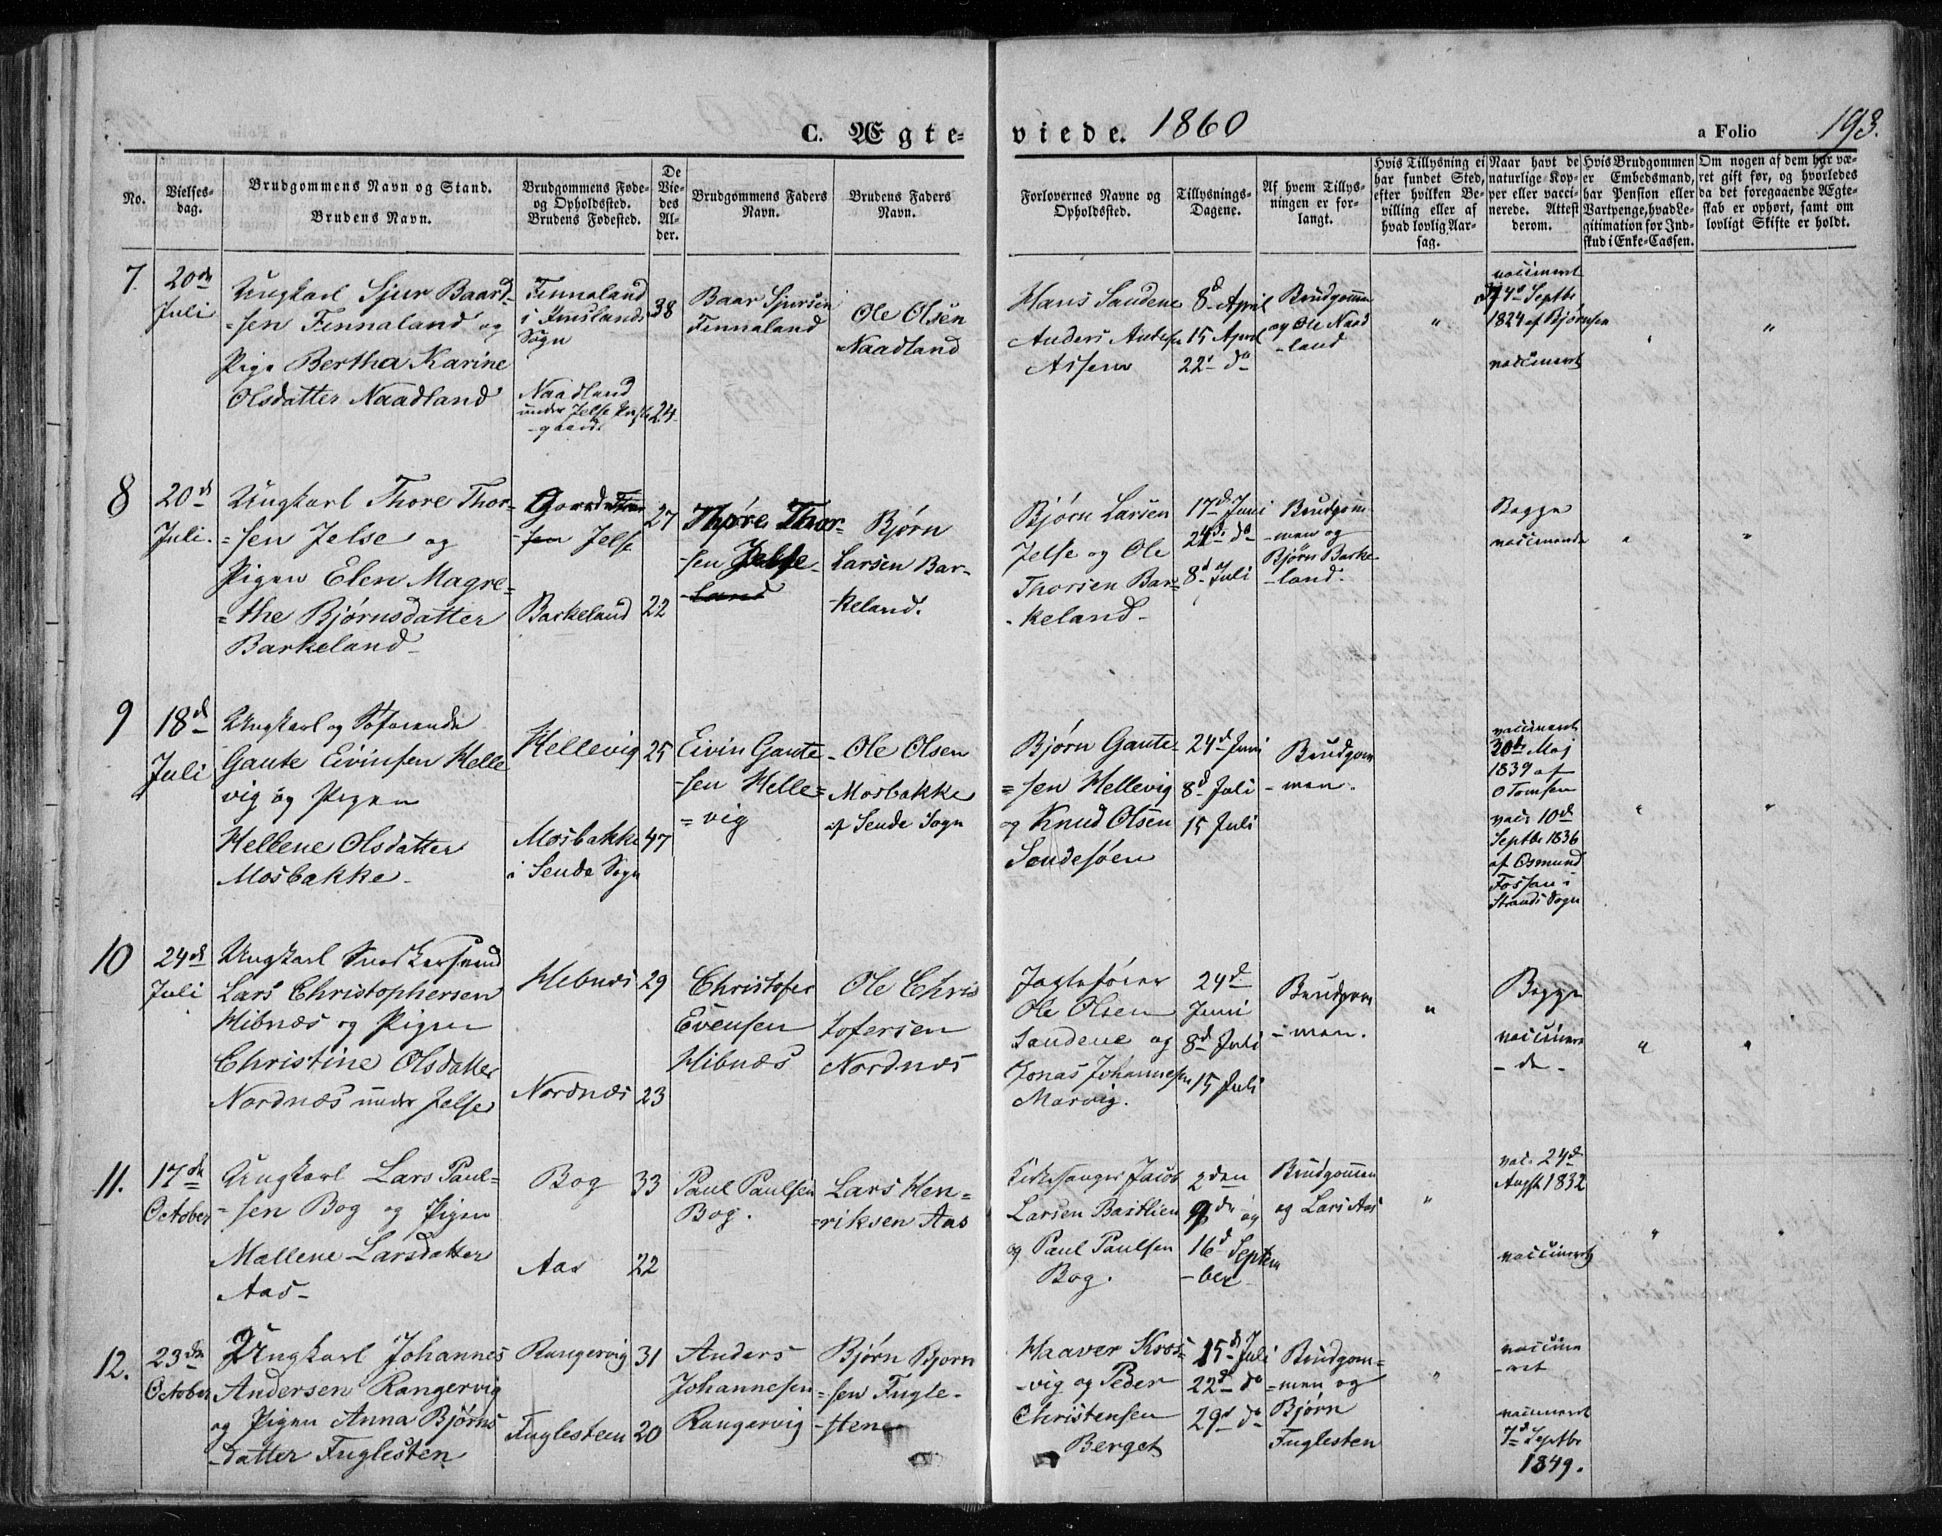 C. Ægte-
viede. 1860
a Folio 193.
No.
Vielses-
dag.
Brudgommens Navn og Stand.
Brudens Navn.
Brudgommens Føde-
og Opholdssted.
Brudens Fødested.
De
Vie-
des
Al-
der.
Brudgommens Faders
Navn.
Brudens Faders
Navn.
Forlovernes Navne og
Opholdssted.
Tillysnings-
Dagene.
Af hvem Tillys-
ningen er for-
langt.
Hvis Tillysning ei
har fundet Sted,
efter hvilken Be-
villing eller af
hvad lovlig Aar-
sag.
Naar havt de
naturlige Kop-
per eller vacci-
nerede. Attest
derom.
Hvis Brudgommen
er Embedsmand,
har Pension eller
Vartpenge, hvad Le-
gitimation for Ind-
skud i Enke-Cassen.
Om nogen af dem har væ-
ret gift før, og hvorledes
da det foregaaende Ægte-
skab er ophørt, samt om
lovligt Skifte er holdt.
7.
20de
Juli
Ungkarl Sjur Baard-
=sen Finnaland og
Pige Bertha Karine
Olsdatter Naadland
Finnaland
i Imslands
Sogn
Naadland
under Jelse
38
24
Baar Sjursen
Finnaland
Ole Olsen
Naadland
Hans Sandene
Anders
8d April
15 April
22d do
Brudgommen
og Ole Naad
-land
"
vaccineret
Septbr
1824 af Bjørnsen
vaccineret
"
"
8
20de
Juli.
Ungkarl Thore Thor-
=sen Jelse og
Pigen Elen Magre=
=the Bjørnsdatter
Barkeland
Jelse
Barkeland
27
22
Thore Thor-
-sen Jelse
-land
Bjørn
Larsen Bar-
-keland.
Bjørn Larsen
Jelse og Ole
Thorsen Bar=
-keland-
17d Juni
24d do
8d Juli
Brudgom-
-men og
Bjørn Barke-
-land.
Begge
vaccinerede
"
"
9
18de
Juli
Ungkarl og Søfarende
Gaute Eivinsen Helle
vig og Pigen
Hellene Olsdatter
Mosbakke-
Hellevig
Mosbakke
i Sende Sogn
25
47
Eivin Gaute-
-sen Helle=
=vig
Ole Olsen
Mosbakke
af Sende Sogn
Bjørn Gaute-
=sen Hellevig
og Knud Olsen
Sandesøen
24d Juni
8d Juli
15 Juli
Brudgom
-men.
vaccineret
30de Maj
1839 af
O Tomsen
vac: 10de
Septbr 1836
af Osmund
Fossan i
Strands Sogn
"
"
10
24de
Juli
Ungkarl
Lars Christophersen
Hibnæs og Pigen
Christine Olsdatter
Nordnæs under Jelse
Hebnæs
Nordnæs
29
23
Christofer
Evensen
Hibnæs
Ole Chris
tofersen
Nordnæs
Ole Olsen
Sandene og
Jonas Johannesen
Marvig.
24d
Juni
8d Juli
15 Juli
Brudgom
-men.
"
Begge
vaccinere
-de-
"
"
11.
17de
October
Ungkarl Lars Paul=
-sen Bog og Pigen
Mallene Larsdatter
Aas-
Bog
Aas
33
22
Paul Paulsen
Bog.
Lars Hen=
=riksen Aas
Kirkesanger Jacob
Larsen Bastlien
og Paul Paulsen
Bog.
2den
9de og
16d Septem
-ber
Brudgommen
og Lars Aas
"
vac. 24d
Augst 1832
vaccineret
"
"
12.
23de
October
Ungkarl Johannes
Andersen Rangervig
og Pigen Anna Bjørns
-datter Fuglesten
Rangervig
Fuglesteen
31
20
Anders
Johannesen
Rangervig
Bjørn Bjorn
=sen Fugle-
-sten
Haaver Kros-
-vig og Peder
Christensen
Berget
15d Juli
22d do
29d do
Brudgom=
=men og
Bjørn
Fuglesten
"
vaccine
-ret
vaccineret
7d Septbr
1849.